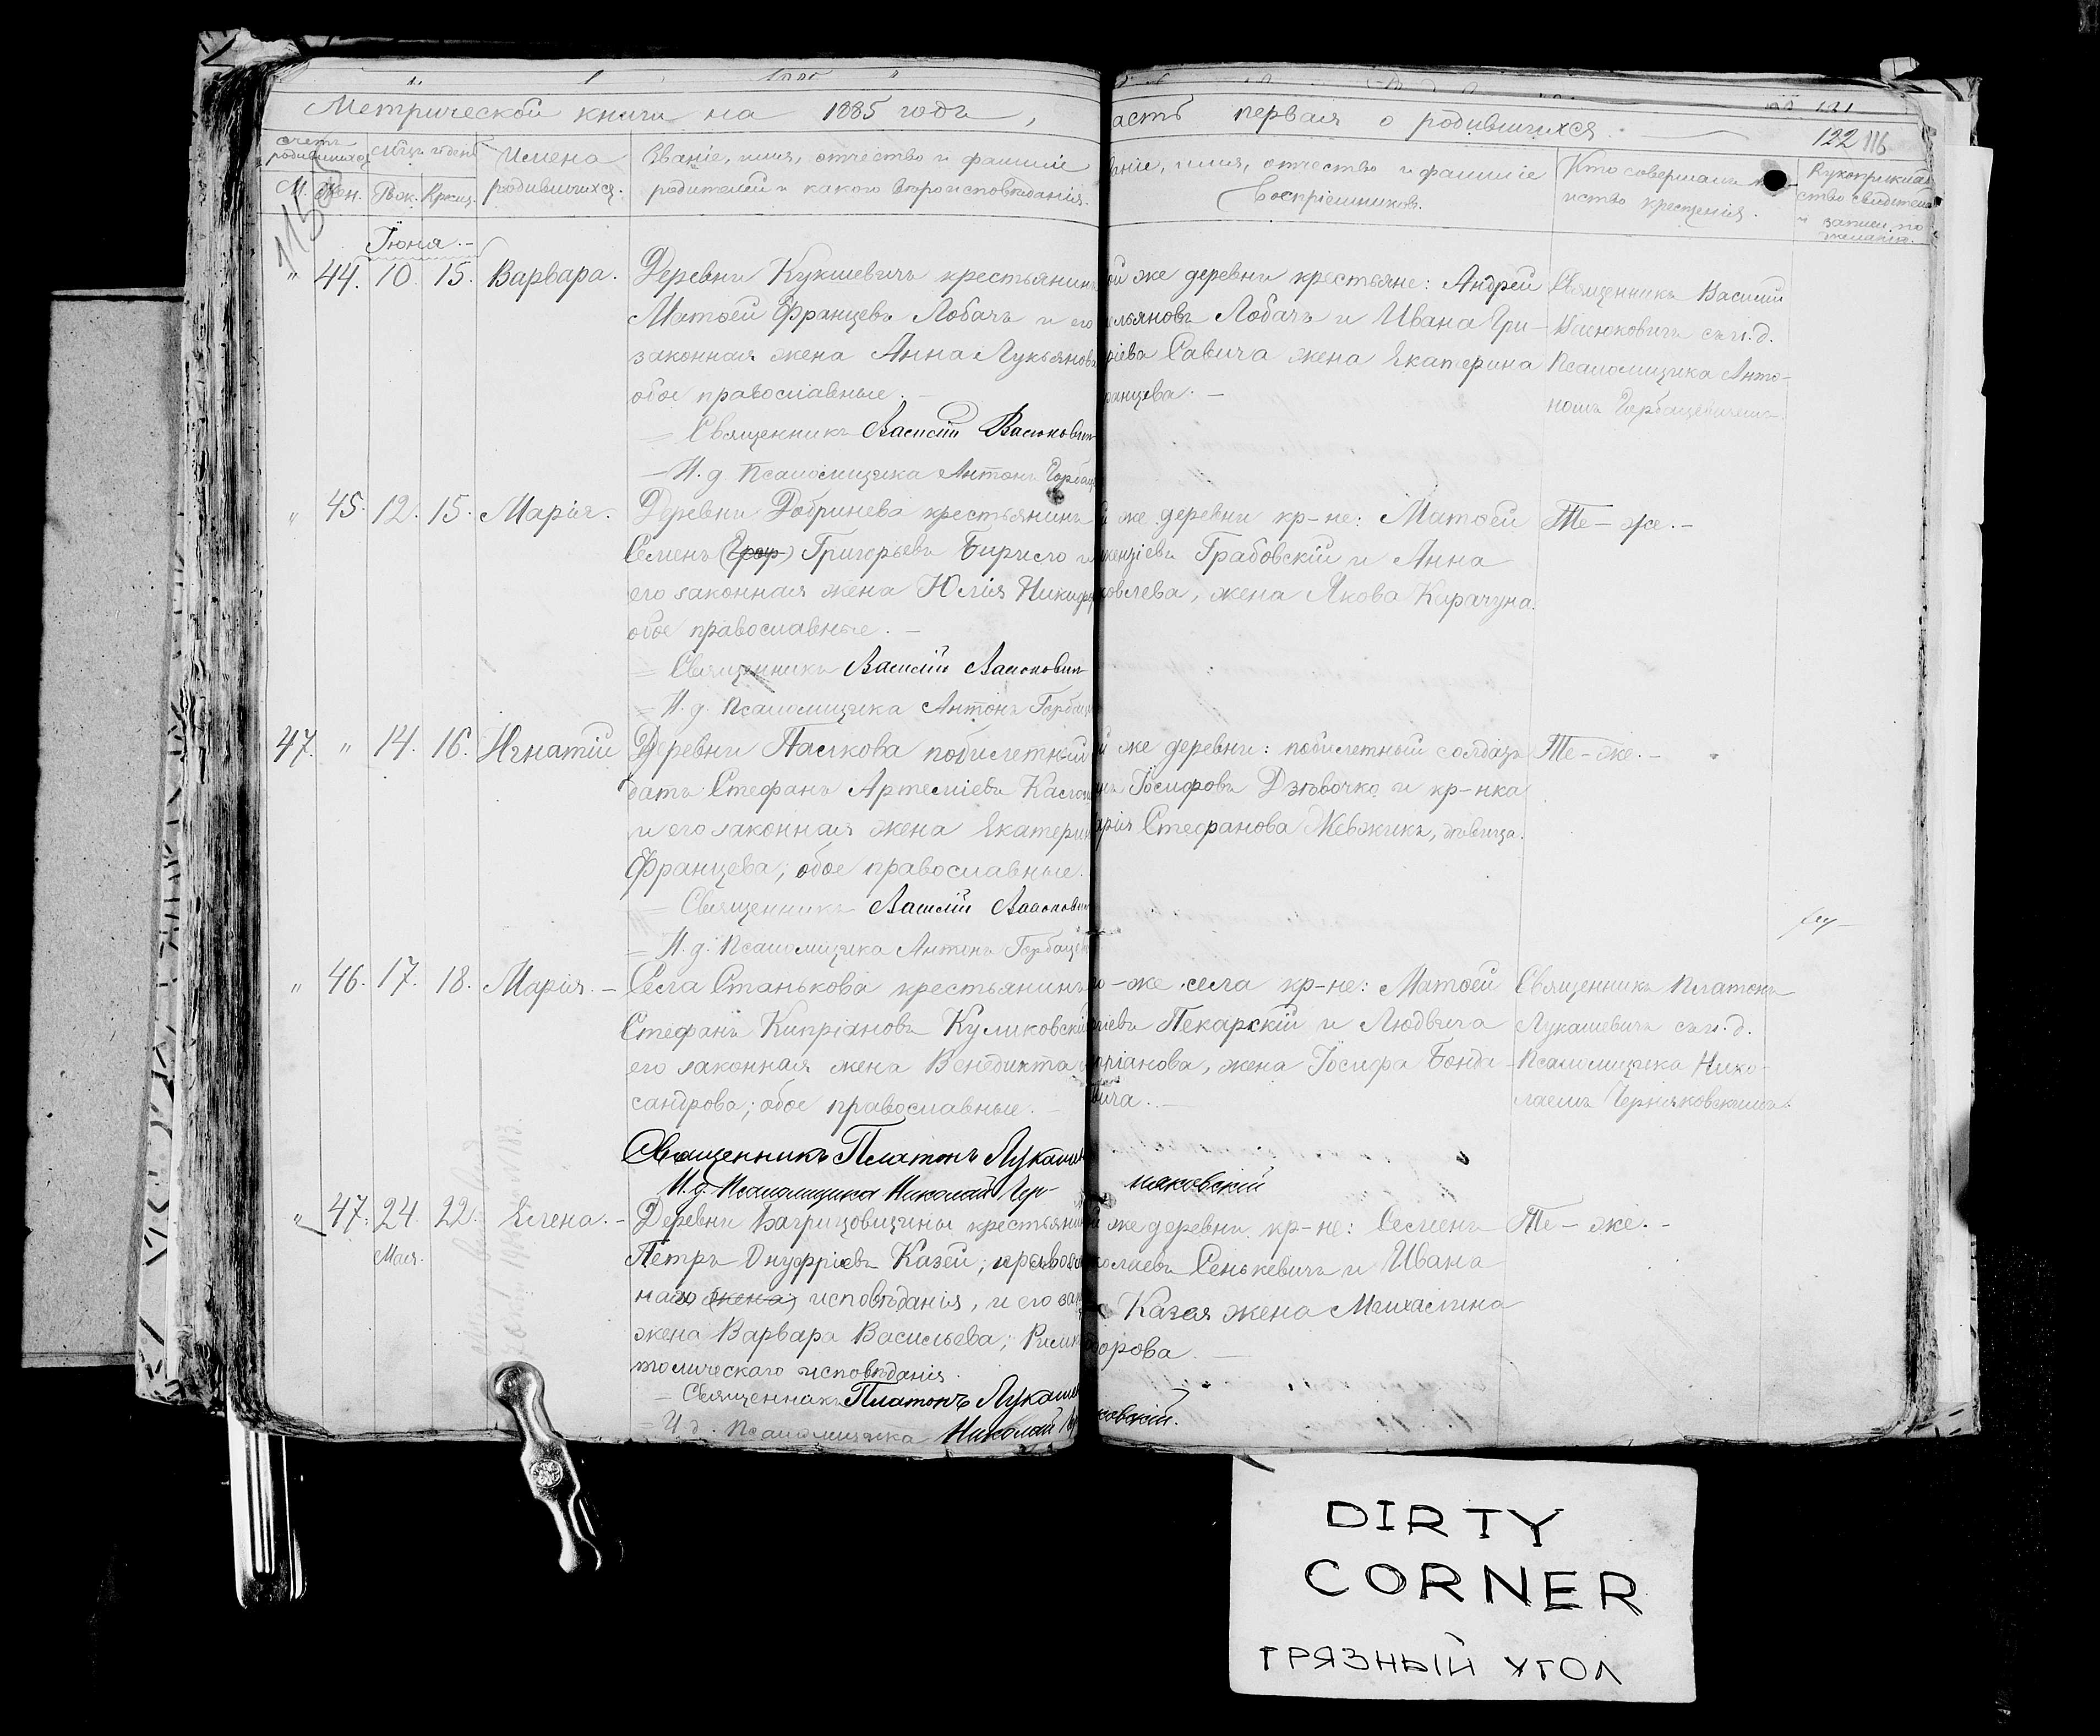 Метрической книги на 1885 годъ,
асть первая о родившихся.
122 116
115
счетъ родившихся
М. Жен.
Рож. Крещ.
Имена
родившихся.
Званіе, имя, отчество и фамиліи
родителей и какого вѣроисповѣданія.
ніе, имя, отчество и фамиліе
воспріемниковъ.
Кто совершалъ
инство крещенія.
Рукоприклад
ство свидѣтеле
и записи по
желанію.
Іюня.
" 44. 10. 15. Варвара.
Деревни Кукшевичъ крестьянинъ
Матѳей Францевъ Лобачъ и его
законная жена Анна Лукьянова
обое православные. –
Священникъ Василій Васюкович
И. д. Псаломщика Антонъ Горбац
ой же деревни крестьяне: Андрей
ельяновъ Лобачъ и Ивана Гри-
рьева Савича жена Екатерина
ранцева. –
Священникъ Василій
Васюковичъ съ и. д.
Псаломщика Анто-
номъ Горбацевичемъ.
" 45. 12. 15. Марія.
Деревни Добринева крестьянинъ
Семенъ Григорьевъ Бирило и
его законная жена Юлія Никиф
обое православные. –
Священникъ Василій Васюкович
И. д. Псаломщика Антонъ Горбац
й же деревни кр-не: Матѳей
Грабовскій и Анна
ковлева, жена Якова Карачуна.
Те – же. –
47. " 14. 16. Игнатій
Деревни Пасѣкова побилетный
датъ Стефанъ Артеміевъ
и его законная жена Екатерин
Францева; обое православные.
Священникъ Василій Васюкович
И. д. Псаломщика Антонъ Горбаце
й же деревни: побилетный солдатъ
Іосифовъ Дѣвочко и кр-нка
арія Стефанова Жевжикъ, дѣвица.
Те – же. –
" 46. 17. 18. Марія. –
Села Станькова крестьянинъ
Стефанъ Кипріановъ Куликовскі
его законная жена Венедикта
сандрова; обое православные.
Священникъ Платонъ Лукаше
И. д. Псаломщика Николай Чер-
няковскій
о-же села кр-не: Матѳей
Пекарскій и Людвига
оріанова, жена Іосифа Бонда-
вича. –
Священникъ Платонъ
Лукашевичъ съ и. д.
Псаломщика Нико-
лаемъ Черняковскимъ.
" 47. 24 22. Елена. –
Мая.
Деревни Багрицовщины крестьянин
Петръ Онуфріевъ Казей; правосл
наго (жена) исповѣданія, и его зак
жена Варвара Васильева; Римск
толическаго исповѣданія.
Священникъ Платонъ Лукаше
И. д. Псаломщика Николай Чер
ковскій.
й же деревни кр-не: Семенъ
колаевъ Сенькевичъ и Ивана
Казея жена Михалина
дорова. –
Те – же. –
DIRTY
CORNER
ГРЯЗНЫЙ УГОЛ